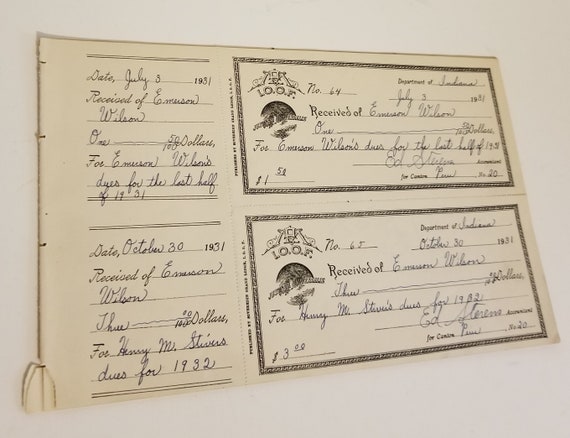 Date, July 3 1931
Received of Emerson
Wilson
One 50/100 Dollars,
For Emerson Wilson's
dues for the last half
of 1931
PUBLISHED BY SOVEREIGN GRAND LODGE, I.O.O.F.
I.O.O.F.
Department of Indiana
No. 64 July 3 1931
Received of Emerson Wilson
One 50/100 Dollars,
For Emerson Wilson's dues for the last half of 1931
Ed Sterens Accountant
$ 1 50 for Canton Peru No. 20
Date, October 30 1931
Received of Emerson
Wilson
Three 00/100 Dollars,
For Henry M. Stivers
dues for 1932
PUBLISHED BY SOVEREIGN GRAND LODGE, I.O.O.F.
I.O.O.F.
Department of Indiana
No. 65 October 30 1931
Received of Emerson Wilson
Three 00/100 Dollars,
For Henry M. Stiver's dues for 1932
Ed Sterens Accountant
$ 3 00 for Canton Peru No. 20